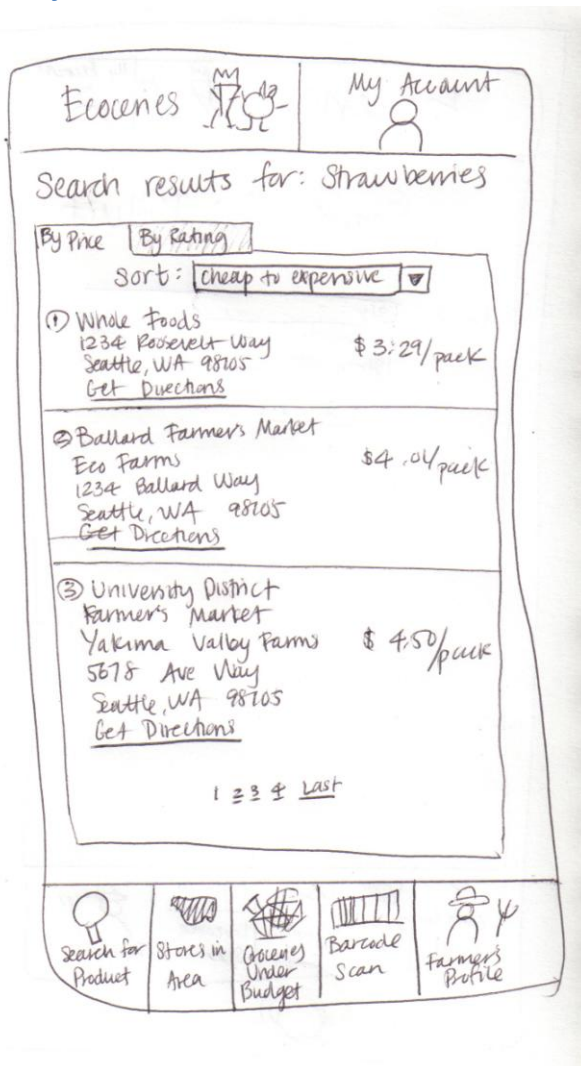 Ecoceries
My Account
Search results for: Strawberries
By Price By Rating
sort: cheap to expensive
① Whole Foods
1234 Roosevelt Way
Seattle, WA 98105
Get Directions
$3.29/pack
② Ballard Farmer's Market
Eco Farms
1234 Ballard Way
Seattle, WA 98105
Get Directions
$4.01/pack
③ University District
Farmer's Market
Yakima Valley Farms
5678 Ave Way
Seattle, WA 98105
Get Directions
$4.50/pack
1 2 3 4 Last
Search for
Product
Stores in
Area
Groceries
Under
Budget
Barcode
Scan
Farmer's
Profile